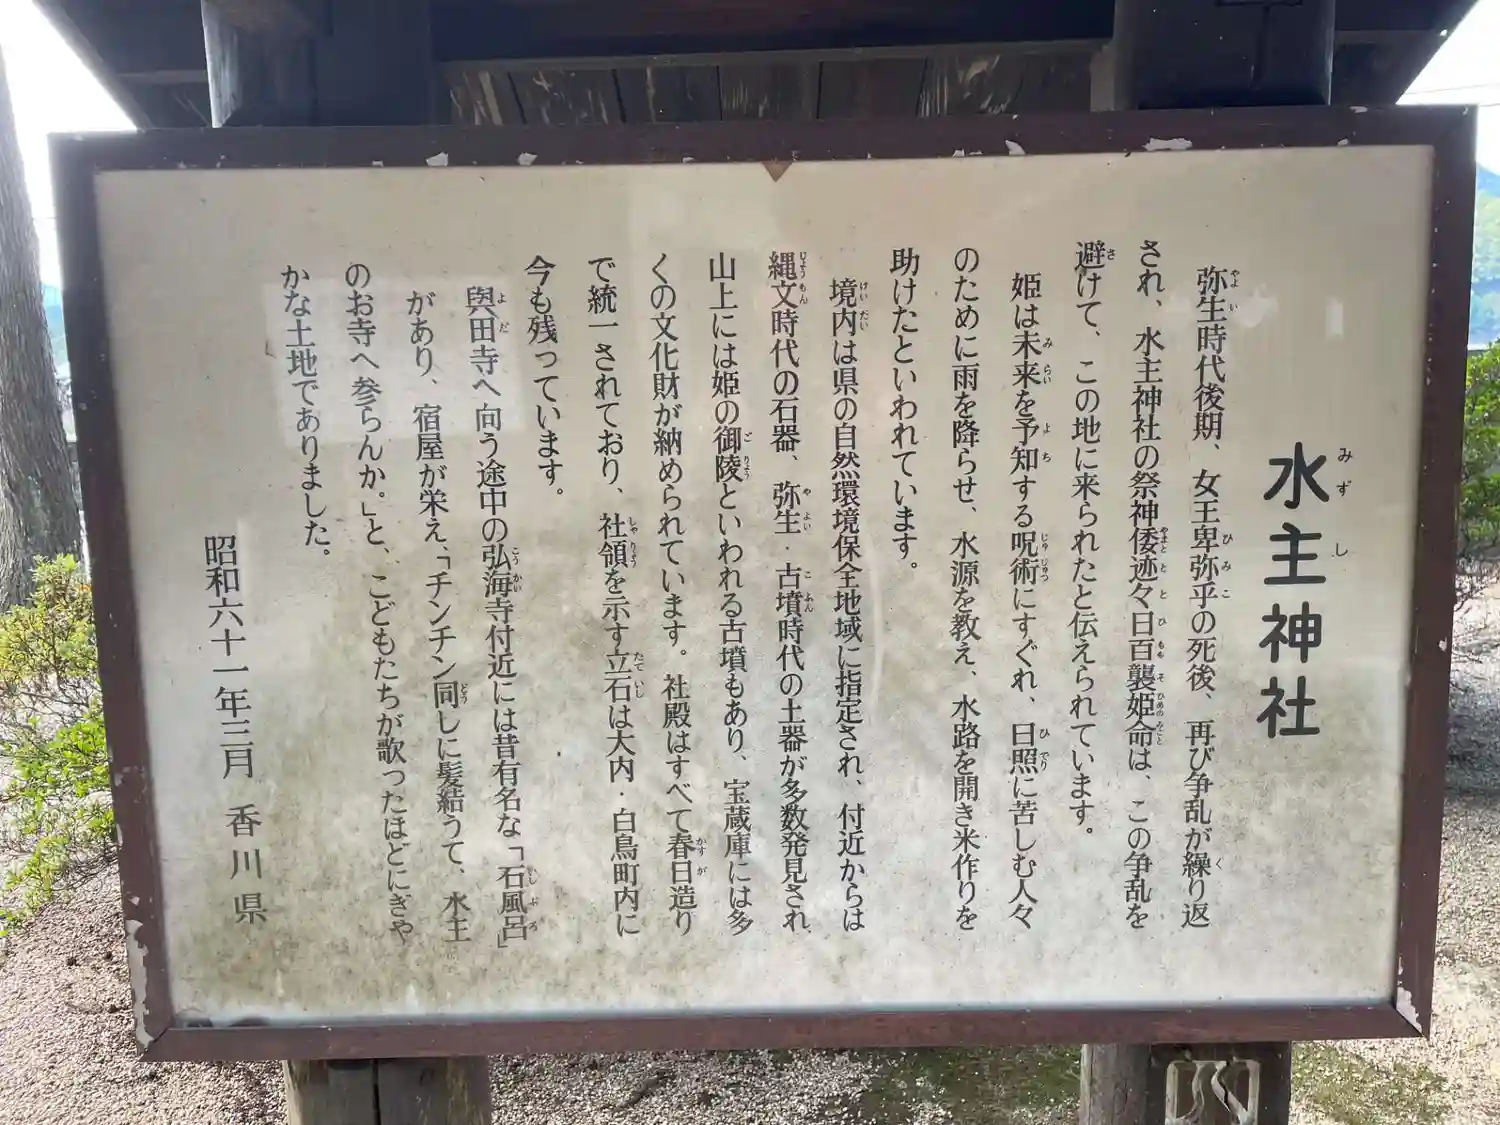 水主神社
弥生時代後期、女王卑弥乎の死後、再び争乱が繰り返
され、水主神社の祭神倭迹々日百襲姫命は、この争乱を
避けて、この地に来られたと伝えられています。
姫は未来を予知する呪術にすぐれ、日照に苦しむ人々
のために雨を降らせ、水源を教え、水路を開き米作りを
助けたといわれています。
境内は県の自然環境保全地域に指定され、付近からは
縄文時代の石器、弥生・古墳時代の土器が多数発見され
山上には姫の御陵といわれる古墳もあり、宝蔵庫には多
くの文化財が納められています。社殿はすべて春日造り
で統一されており、社領を示す立石は大内・白鳥町内に
今も残っています。
與田寺へ向う途中の弘海寺付近には昔有名な「石風呂」
があり、宿屋が栄え、「チンチン同しに髪結うて、水主
のお寺へ参らんか。」と、こどもたちが歌ったほどにぎや
かな土地でありました。
昭和六十一年三月　香川県